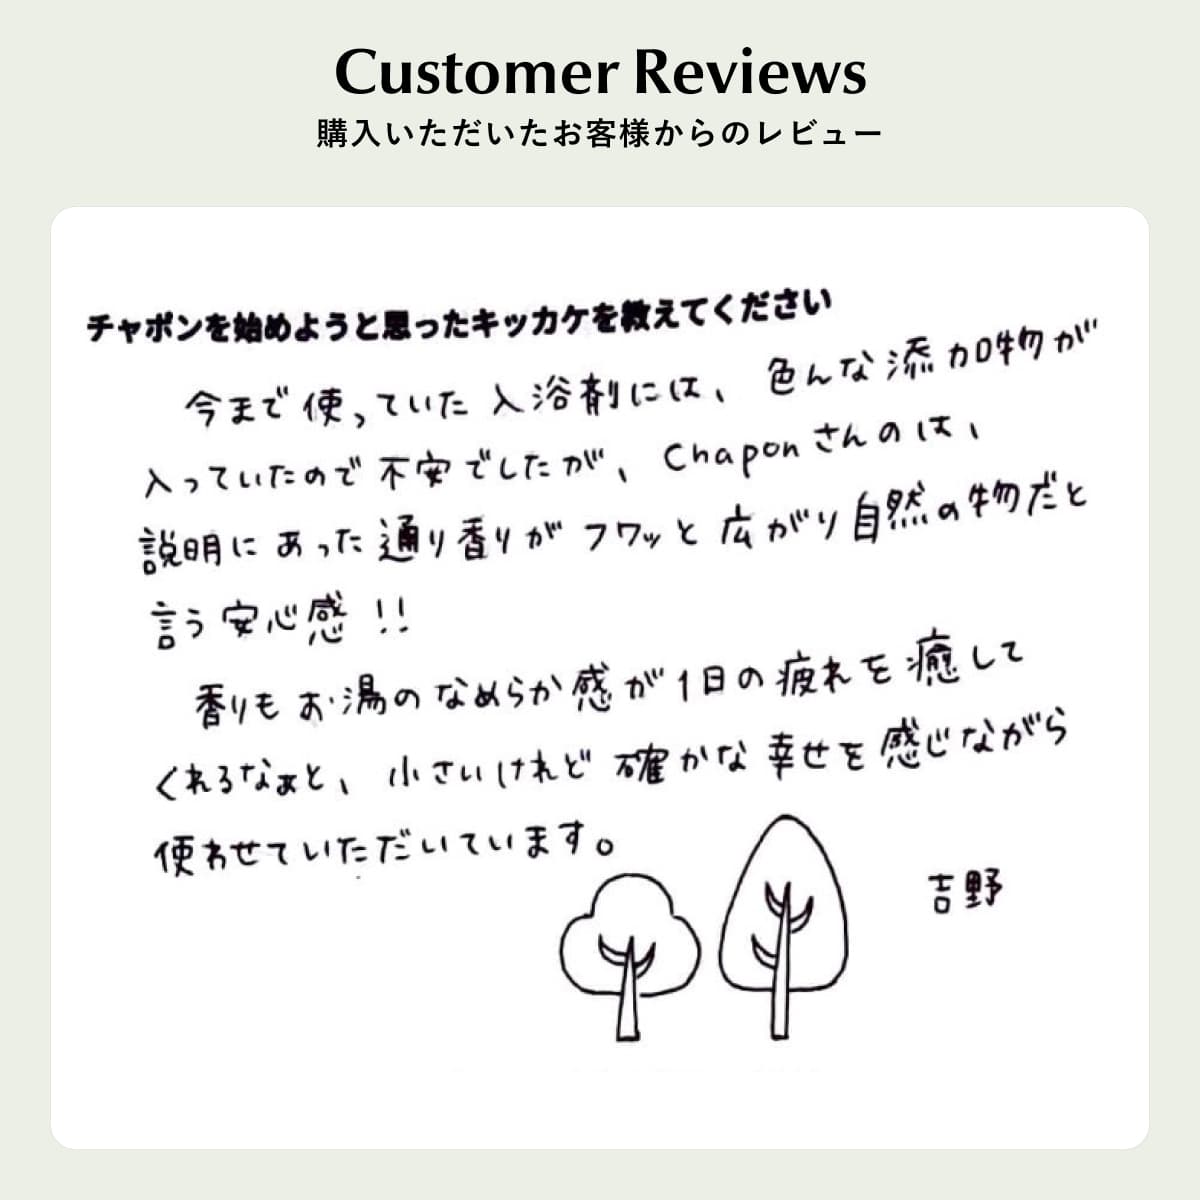 Customer Reviews
購入いただいたお客様からのレビュー
チャポンを始めようと思ったキッカケを教えてください
今まで使っていた入浴剤には、色んな添加物が
入っていたので不安でしたが、Chaponさんのは、
説明にあった通り香りがフワッと広がり自然の物だと
言う安心感!!
香りもお湯のなめらか感が1日の疲れを癒して
くれるなぁと、小さいけれど確かな幸せを感じながら
使わせていただいています。
吉野